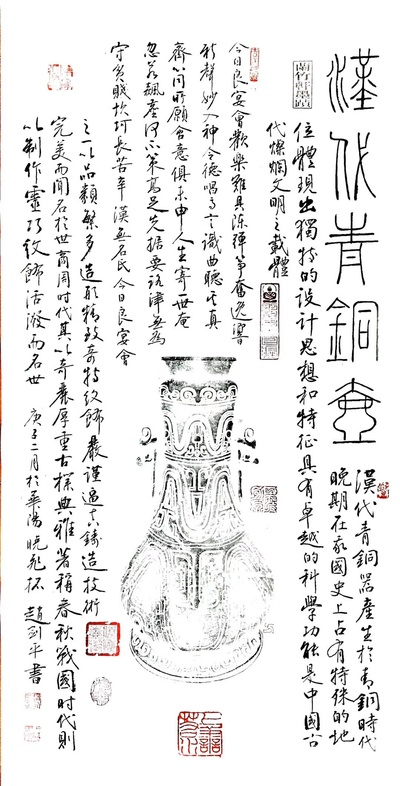 漢代青銅壺
蘭竹軒墨蹟
漢代青銅器產生於青銅時代
晚期在我國史上占有特殊的地
位體現出獨特的设计思想和特征具有卓越的科學功能是中國古
代燦爛文明之載體
今日良宴會歡樂難具陳彈箏奮逸響
新聲妙入神令德唱高言識曲聽其真
齊心同所願含意俱未申人生寄一世奄
忽若飆塵何不策高足先據要路津無為
守貧賤坎坷長苦辛漢無名氏今日良宴會
之一以品類繁多造形精致奇特纹飾嚴謹逼真鑄造技術
完美而聞名於世商周时代其以奇厚重古樸典雅著稱春秋戰國时代則
以制作靈巧纹飾活潑而名世 庚子二月於華陽晚 趙剑平書